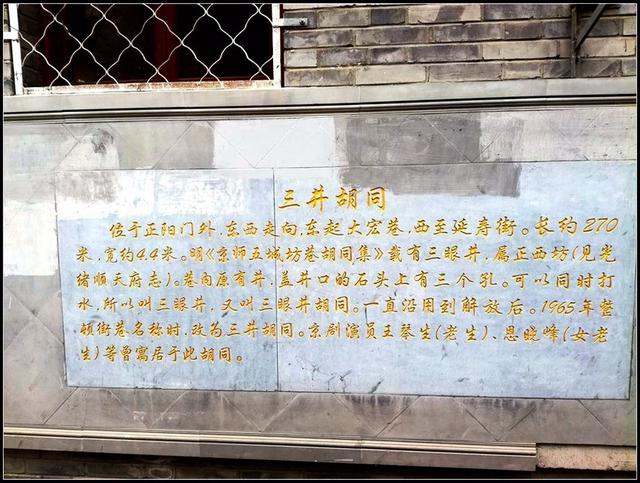 三井胡同
位于正阳门外，东西走向，东起大宏巷，西至延寿街。长约270
米，宽约4.4米。明《京师五城坊巷胡同集》载有三眼井，属正西坊(见光
绪顺天府志)。巷内原有井，盖井口的石头上有三个孔。可以同时打
水，所以叫三眼井，又叫三眼井胡同。一直沿用到解放后。1965年整
顿街巷名称时，改为三井胡同。京剧演员王琴生(老生)、恩晓峰(女老
生)等曾寓居于此胡同。